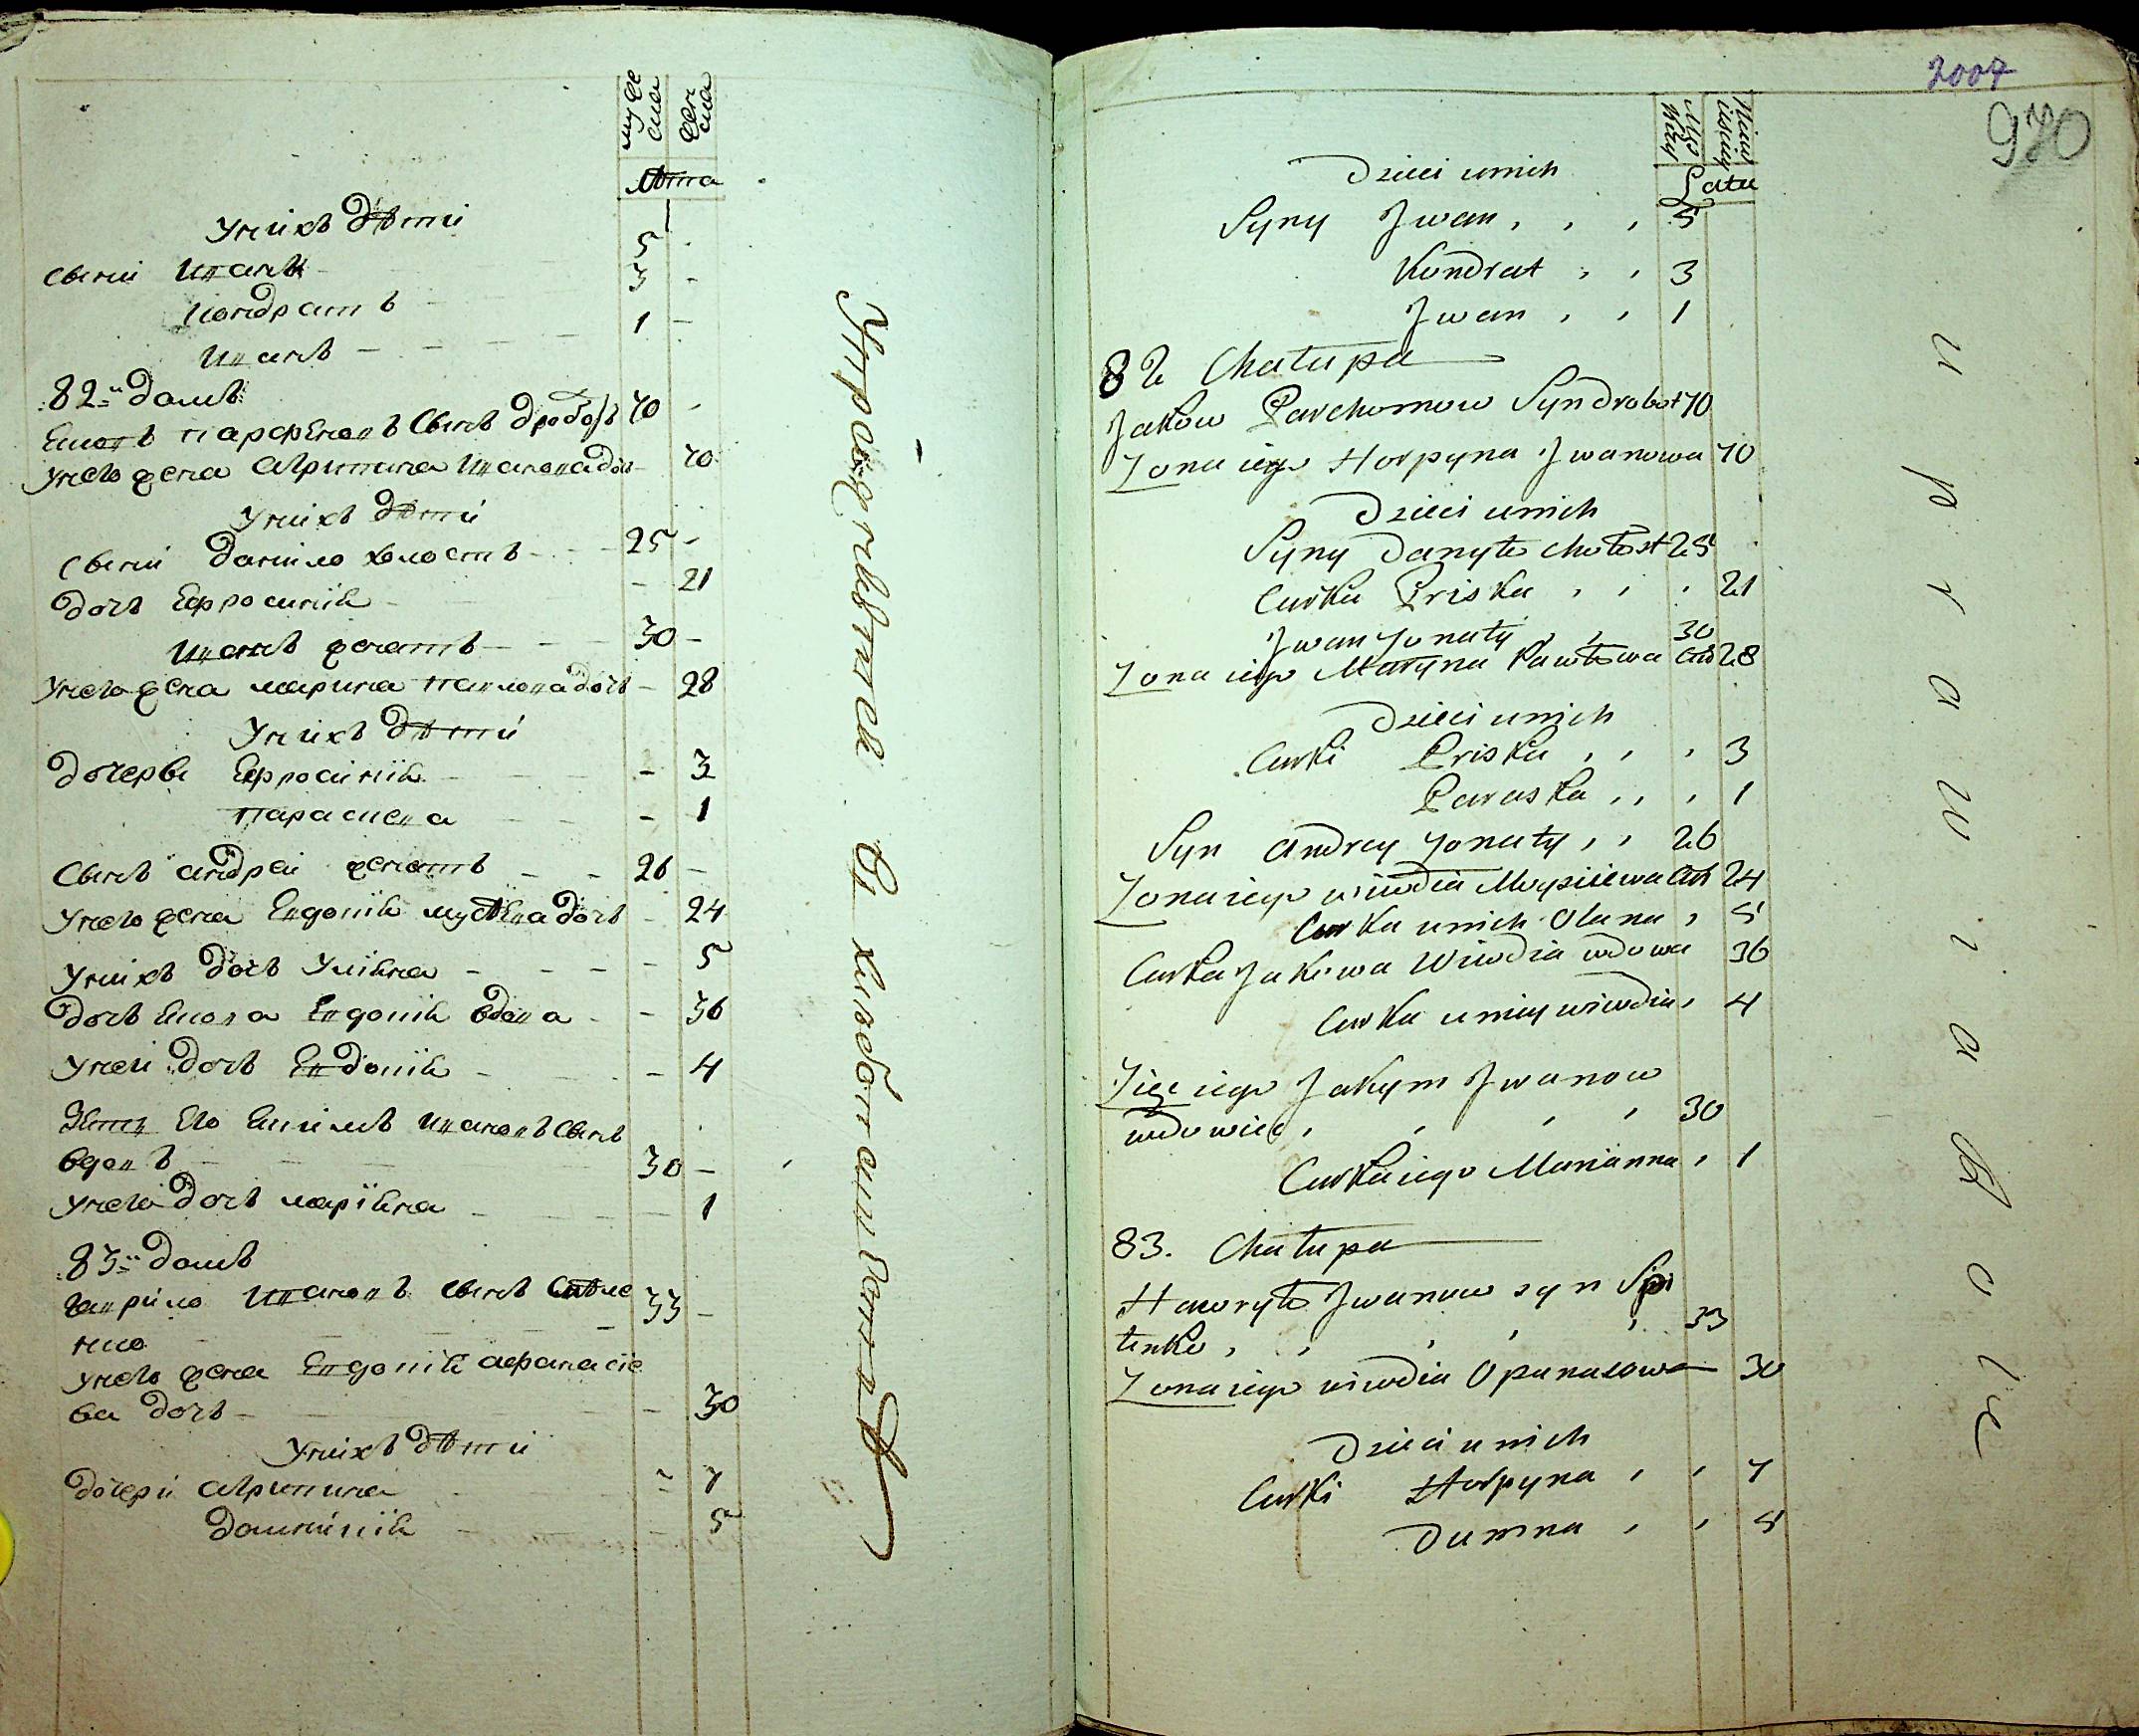 муже
ска
жен
ска
лѣта
У нихъ дѣти
сыни Иванъ 5
Кондратъ 3
Иванъ 1
82й домъ
Яковъ Парфеновъ сынъ Дроботъ 70
У него жена Агрипина Иванова дочь 70
У нихъ дѣти
сыни Данило холостъ 25
дочь Ефросинія 21
Иванъ женатъ 30
У него жена Марина Павлова дочь 28
У нихъ дѣти
дочеры Ефросинія 3
Параскева 1
сынъ Андреи женатъ 26
У него жена Евдокія дочь 24
У нихъ дочь Уліяна 5
дочь Якова Евдокія вдова 36
У неи дочь Евдокія 4
Зять его Якимъ Ивановъ сынъ
вдовъ 30
У него дочь Маріяна 1
83й домъ
Гаврило Ивановъ сынъ
33
У него жена Евдокія Афанасіе
ва дочь 30
У нихъ дѣти
дочери Агрипина 7
Домникія 5
2007
970
Męz
kiey
Latu
Dzieci u nich
Syny Jwan 5
Kondrat 3
Jwan 1
82 Chatupa
Jakow Parchomow Syn Drobot 70
Zona iego Horpyna Jwanowa 70
Dzieci u nich
Syny Danyto Chotost 25
Curka Priska 21
Jwan Zonaty 30
Zona iego Maryna Pawtowa 28
Dzieci u nich
Curki Priska 3
Paraska 1
Syn Andrey Zonaty 26
Zona iego Wiwdia Moysiiewa 24
Curka u nich Olana 5
Curka Jakowa Wiwdia wdowa 36
Curka u niey Wiwdia 4
Zięc iego Jakym Jwanow
wdowiec 30
Curka iego Marianna 1
83. Chatupa
Hawryto Jwanow syn
33
Zona iego Wiwdia Opanasowa 30
Dzieci u nich
Curki Horpyna 7
Dumna 5